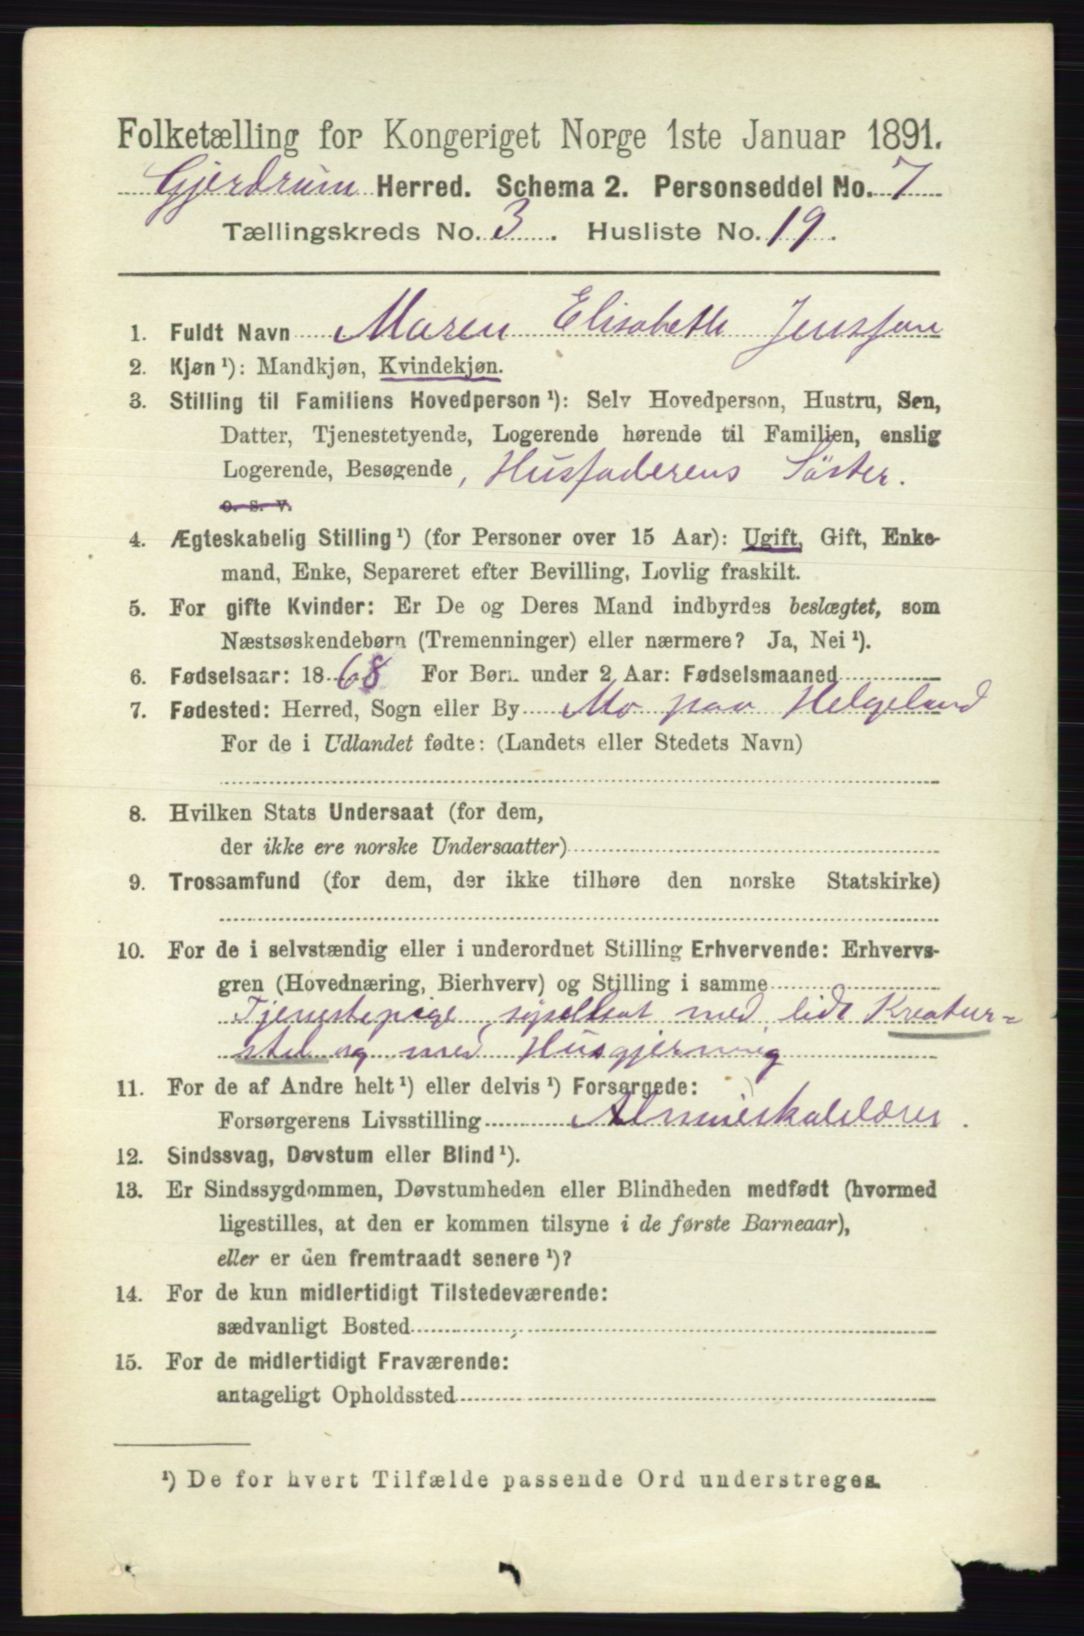 Folketælling for Kongeriget Norge 1ste Januar 1891.
Gjerdrum Herred. Schema 2. Personseddel No. 7
Tællingskreds No. 3. Husliste No. 19.
1. Fuldt Navn Maren Elisabeth Jenssen
2. Kjøn ¹): Mandkjøn, Kvindekjøn.
3. Stilling til Familiens Hovedperson ¹): Selv Hovedperson, Hustru, Søn,
Datter, Tjenestetyende, Logerende hørende til Familien, enslig
Logerende, Besøgende, Husfaderens Søster.
o. s. v.
4. Ægteskabelig Stilling ¹) (for Personer over 15 Aar): Ugift, Gift, Enke-
mand, Enke, Separeret efter Bevilling, Lovlig fraskilt.
5. For gifte Kvinder: Er De og Deres Mand indbyrdes beslægtet, som
Næstsøskendebørn (Tremenninger) eller nærmere? Ja, Nei ¹).
6. Fødselsaar: 1868 For Børn under 2 Aar: Fødselsmaaned
7. Fødested: Herred, Sogn eller By Mo paa Helgeland
For de i Udlandet fødte: (Landets eller Stedets Navn)
8. Hvilken Stats Undersaat (for dem,
der ikke ere norske Undersaatter)
9. Trossamfund (for dem, der ikke tilhøre den norske Statskirke)
10. For de i selvstændig eller i underordnet Stilling Erhvervende: Erhvervs-
gren (Hovednæring, Bierhverv) og Stilling i samme
Tjenestepige, sysselsat med lidt Kreatur=
stel og med Husgjerning
11. For de af Andre helt ¹) eller delvis ¹) Forsørgede:
Forsørgerens Livsstilling Almueskolelærer.
12. Sindssvag, Døvstum eller Blind ¹).
13. Er Sindssygdommen, Døvstumheden eller Blindheden medfødt (hvormed
ligestilles, at den er kommen tilsyne i de første Barneaar),
eller er den fremtraadt senere ¹)?
14. For de kun midlertidigt Tilstedeværende:
sædvanligt Bosted
15. For de midlertidigt Fraværende:
antageligt Opholdssted
¹) De for hvert Tilfælde passende Ord understreges.